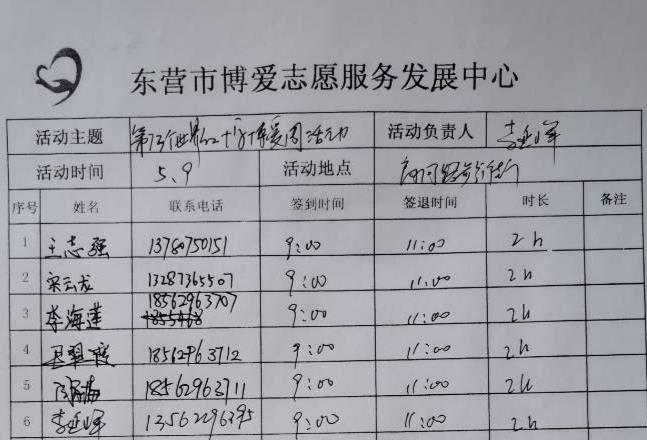 东营市博爱志愿服务发展中心
活动主题 第73个世界红十字博爱周活动 活动负责人
活动时间 5、9 活动地点
序号 姓名 联系电话 签到时间 签退时间 时长 备注
1 王志强 13780750151 9:00 11:00 2h
2 宋云龙 13287365507 9:00 11:00 2h
18562963707
3 李海莲 9:00 11:00 2h
4 18562963712 9:00 11:00 2h
5 18562963711 9:00 11:00 2h
6 13562296395 9:00 11:00 2h